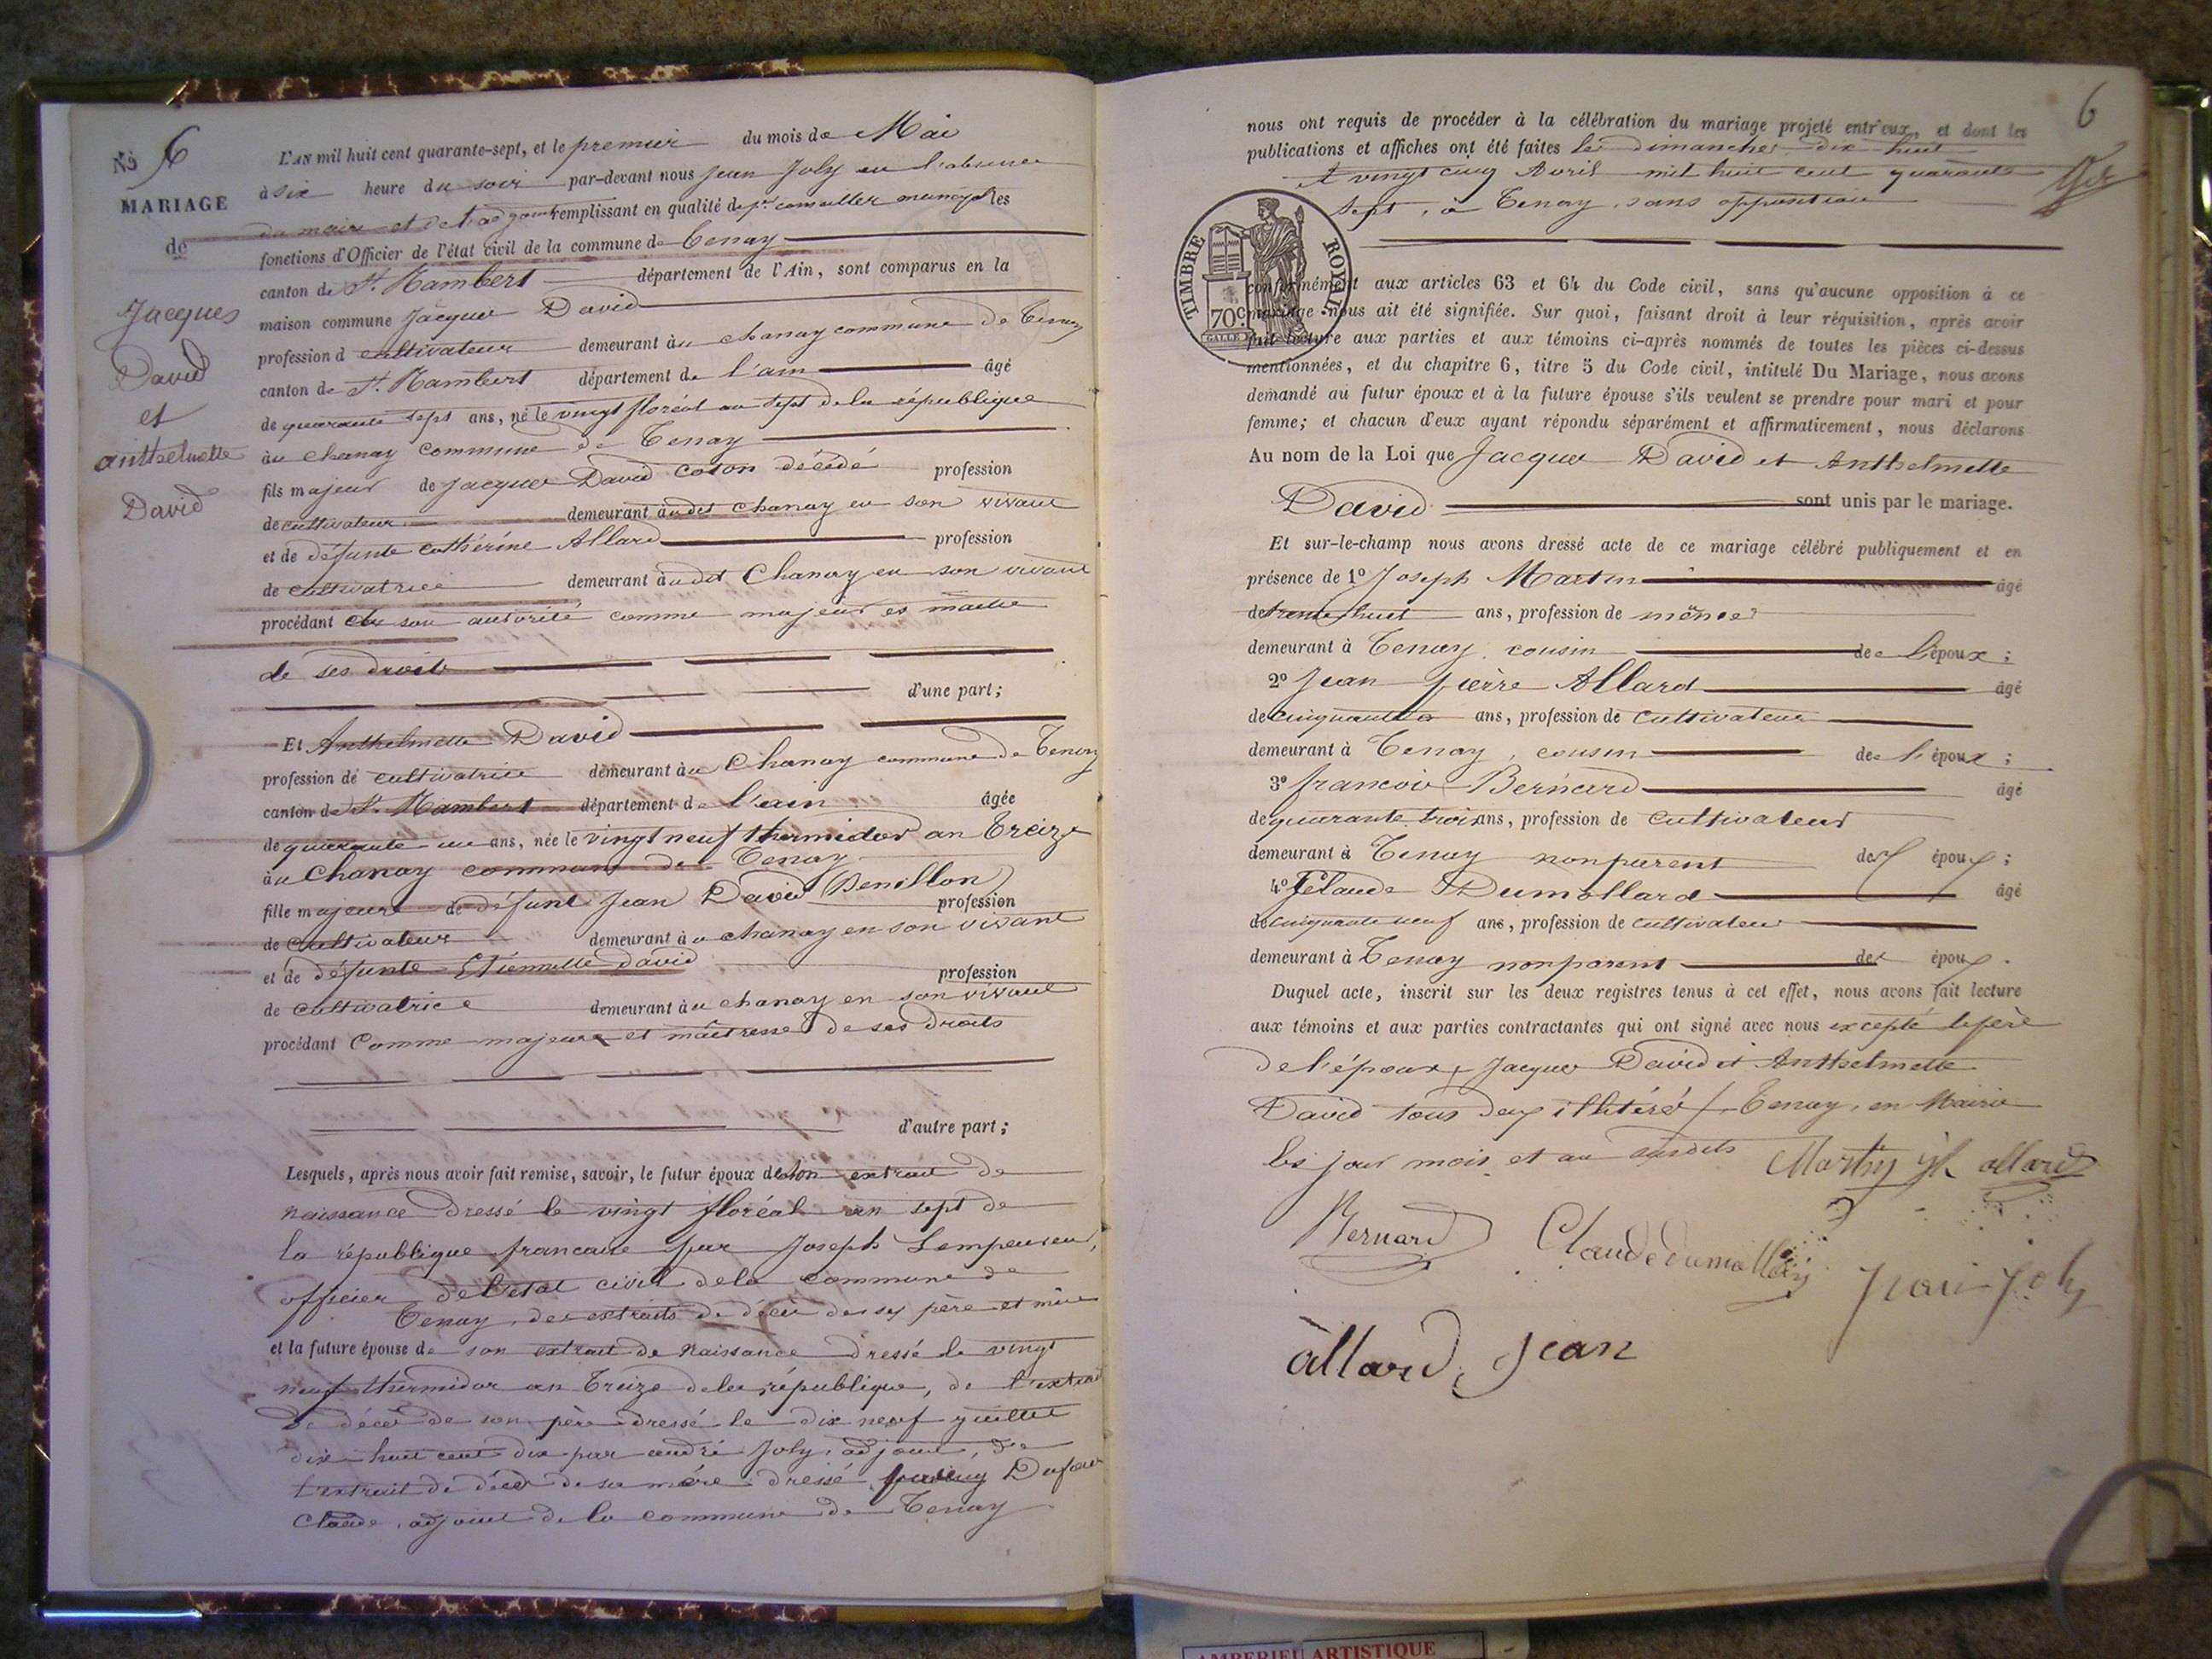 No 6
MARIAGE
de
Jacques
David
et
anthelmette
David
L'AN mil huit cent quarante-sept, et le premier du mois de Mai
à six heure du soir par-devant nous Jean Joly en l'absence
du maire et de l'adjoint remplissant en qualité de pr conseiller municipal les
fonctions d'Officier de l'état civil de la commune de Tenay
canton de St. Rambert département de l'Ain, sont comparus en la
maison commune Jacques David
profession d cultivateur demeurant à u chanay commune de Tenay
canton de St. Rambert département de l'ain âgé
de quarante sept ans, né le vingt floréal an sept de la république
à u chanay commune de Tenay
fils majeur de Jacques David coton décédé profession
de cultivateur demeurant à udit chanay en son vivant
et de défunte cathérine Allard profession
de cultivatrice demeurant à udit Chanay en son vivant
procédant de son autorité comme majeur et maitre
de ses droits
d'une part;
Et Anthelmette David
profession de cultivatrice demeurant à u Chanay commune de Tenay
canton de St. Rambert département de l'ain âgée
de quarante un ans, née le vingt neuf thermidor an treize
à u Chanay commune de Tenay
fille majeure de défunt Jean David Benillon profession
de cultivateur demeurant à u chanay en son vivant
et de défunte Etiennette david profession
de cultivatrice demeurant à u chanay en son vivant
procédant Comme majeure et maîtresse de ses droits
d'autre part;
Lesquels, après nous avoir fait remise, savoir, le futur époux de son extrait de
naissance dressé le vingt floréal an sept de
la république francaise par Joseph Lempereur,
officier de l'état civil de la commune de
Tenay, des extraits de décès de ses père et mère
et la future épouse de son extrait de naissance dressé le vingt
neuf thermidor an treize de la république, de l'extrait
De décès de son père dressé le dix neuf juillet
dix huit cent dix par andré Joly, adjoint, de
l'extrait de décès de sa mère dressé Dufour
Claude, adjoint de la commune de Tenay
6
nous ont requis de procéder à la célébration du mariage projeté entr'eux, et dont les
publications et affiches ont été faites les Dimanches dix huit
et vingt cinq Avril mil huit cent quarante
sept, à Tenay, sans opposition
TIMBRE ROYAL
70c
conformément aux articles 63 et 64 du Code civil, sans qu'aucune opposition à ce
mariage nous ait été signifiée. Sur quoi, faisant droit à leur réquisition, après avoir
fait lecture aux parties et aux témoins ci-après nommés de toutes les pièces ci-dessus
mentionnées, et du chapitre 6, titre 5 du Code civil, intitulé Du Mariage, nous avons
demandé au futur époux et à la future épouse s'ils veulent se prendre pour mari et pour
femme; et chacun d'eux ayant répondu séparément et affirmativement, nous déclarons
Au nom de la Loi que Jacques David et Anthelmette
David sont unis par le mariage.
Et sur-le-champ nous avons dressé acte de ce mariage célébré publiquement et en
présence de 1o Joseph Martin âgé
de trente huit ans, profession de
demeurant à Tenay, cousin de l'époux;
2o Jean pierre Allard âgé
de cinquante ans, profession de cultivateur
demeurant à Tenay, cousin de l'époux;
3o francois Bernard âgé
de quarante trois ans, profession de cultivateur
demeurant à Tenay non parent des époux;
4o Claude Dumollard âgé
de cinquante neuf ans, profession de cultivateur
demeurant à Tenay non parent des époux.
Duquel acte, inscrit sur les deux registres tenus à cet effet, nous avons fait lecture
aux témoins et aux parties contractantes qui ont signé avec nous excepté le père
de l'époux, Jacques David et Anthelmette
David tous deux illitéré Tenay, en Mairie
les jour mois et an susdits Martin jh allard
Bernard Claude dumollard Jean Joly
allard, jean
AMBERIEU ARTISTIQUE